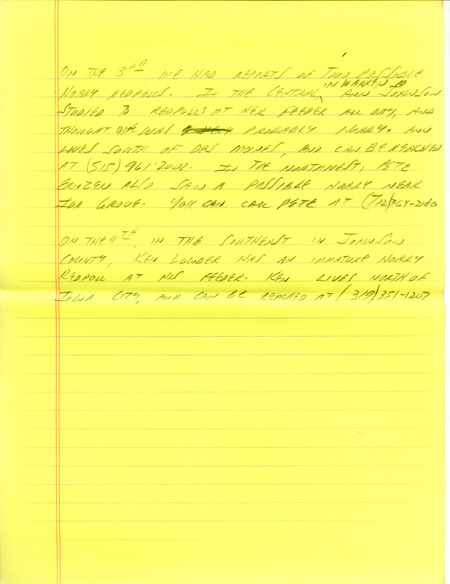 ON THE 3RD WE HAD REPORTS OF TWO POSSIBLE
HOARY REDPOLLS. IN THE CENTRAL, IN WARREN CO ANN JOHNSON
STUDIED 3 REDPOLLS AT HER FEEDER ALL DAY, AND
THOUGHT ONE WAS PROBABLY HOARY. ANN
LIVES SOUTH OF DES MOINES, AND CAN BE REACHED
AT (515) 961-
IN THE NORTHWEST, PETE
ALSO SAW A POSSIBLE HOARY NEAR
IDA GROVE. YOU CAN CALL PETE AT (712)
ON THE 4TH, IN THE SOUTHEAST IN JOHNSON
COUNTY, KEN LOWDER HAS AN IMMATURE HOARY
REDPOLL AT HIS FEEDER. KEN LIVES NORTH OF
IOWA CITY, AND CAN BE REACHED AT (319) 351-1207